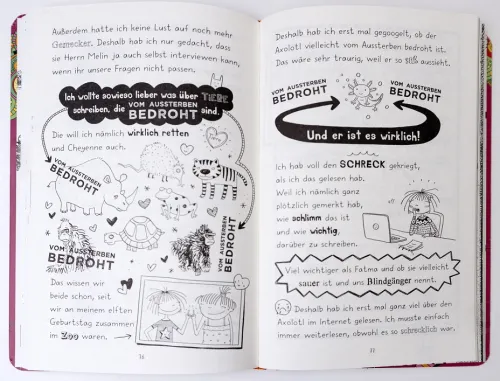 Außerdem hatte ich keine Lust auf noch mehr
Geznecker. Deshalb hab ich nur gedacht, dass
sie Herrn Melin ja auch selbst interviewen kann,
wenn ihr unsere Fragen nicht passen.
Ich wollte sowieso lieber was über TIERE
schreiben, die VOM AUSSTERBEN BEDROHT sind.
Die will ich nämlich wirklich retten
und Cheyenne auch.
VOM AUSSTERBEN
BEDROHT
VOM AUSSTERBEN
BEDROHT
VOM AUSSTERBEN
BEDROHT
Das wissen wir
beide schon, seit
wir an meinem elften
Geburtstag zusammen
im Zoo waren.
36
Deshalb hab ich erst mal gegoogelt, ob der
Axolotl vielleicht vom Aussterben bedroht ist.
Das wäre sehr traurig, weil er so süß aussieht.
VOM AUSSTERBEN
BEDROHT
VOM AUSSTERBEN
BEDROHT
Und er ist es wirklich!
Ich hab voll den SCHRECK gekriegt,
als ich das gelesen hab.
Weil ich nämlich ganz
plötzlich gemerkt hab,
wie schlimm das ist
und wie wichtig,
darüber zu schreiben.
Viel wichtiger als Fatma und ob sie vielleicht
sauer ist und uns Blindgänger nennt.
Deshalb hab ich erst mal ganz viel über den
Axolotl im Internet gelesen. Ich musste einfach
immer weiterlesen, obwohl es so schrecklich war,
37